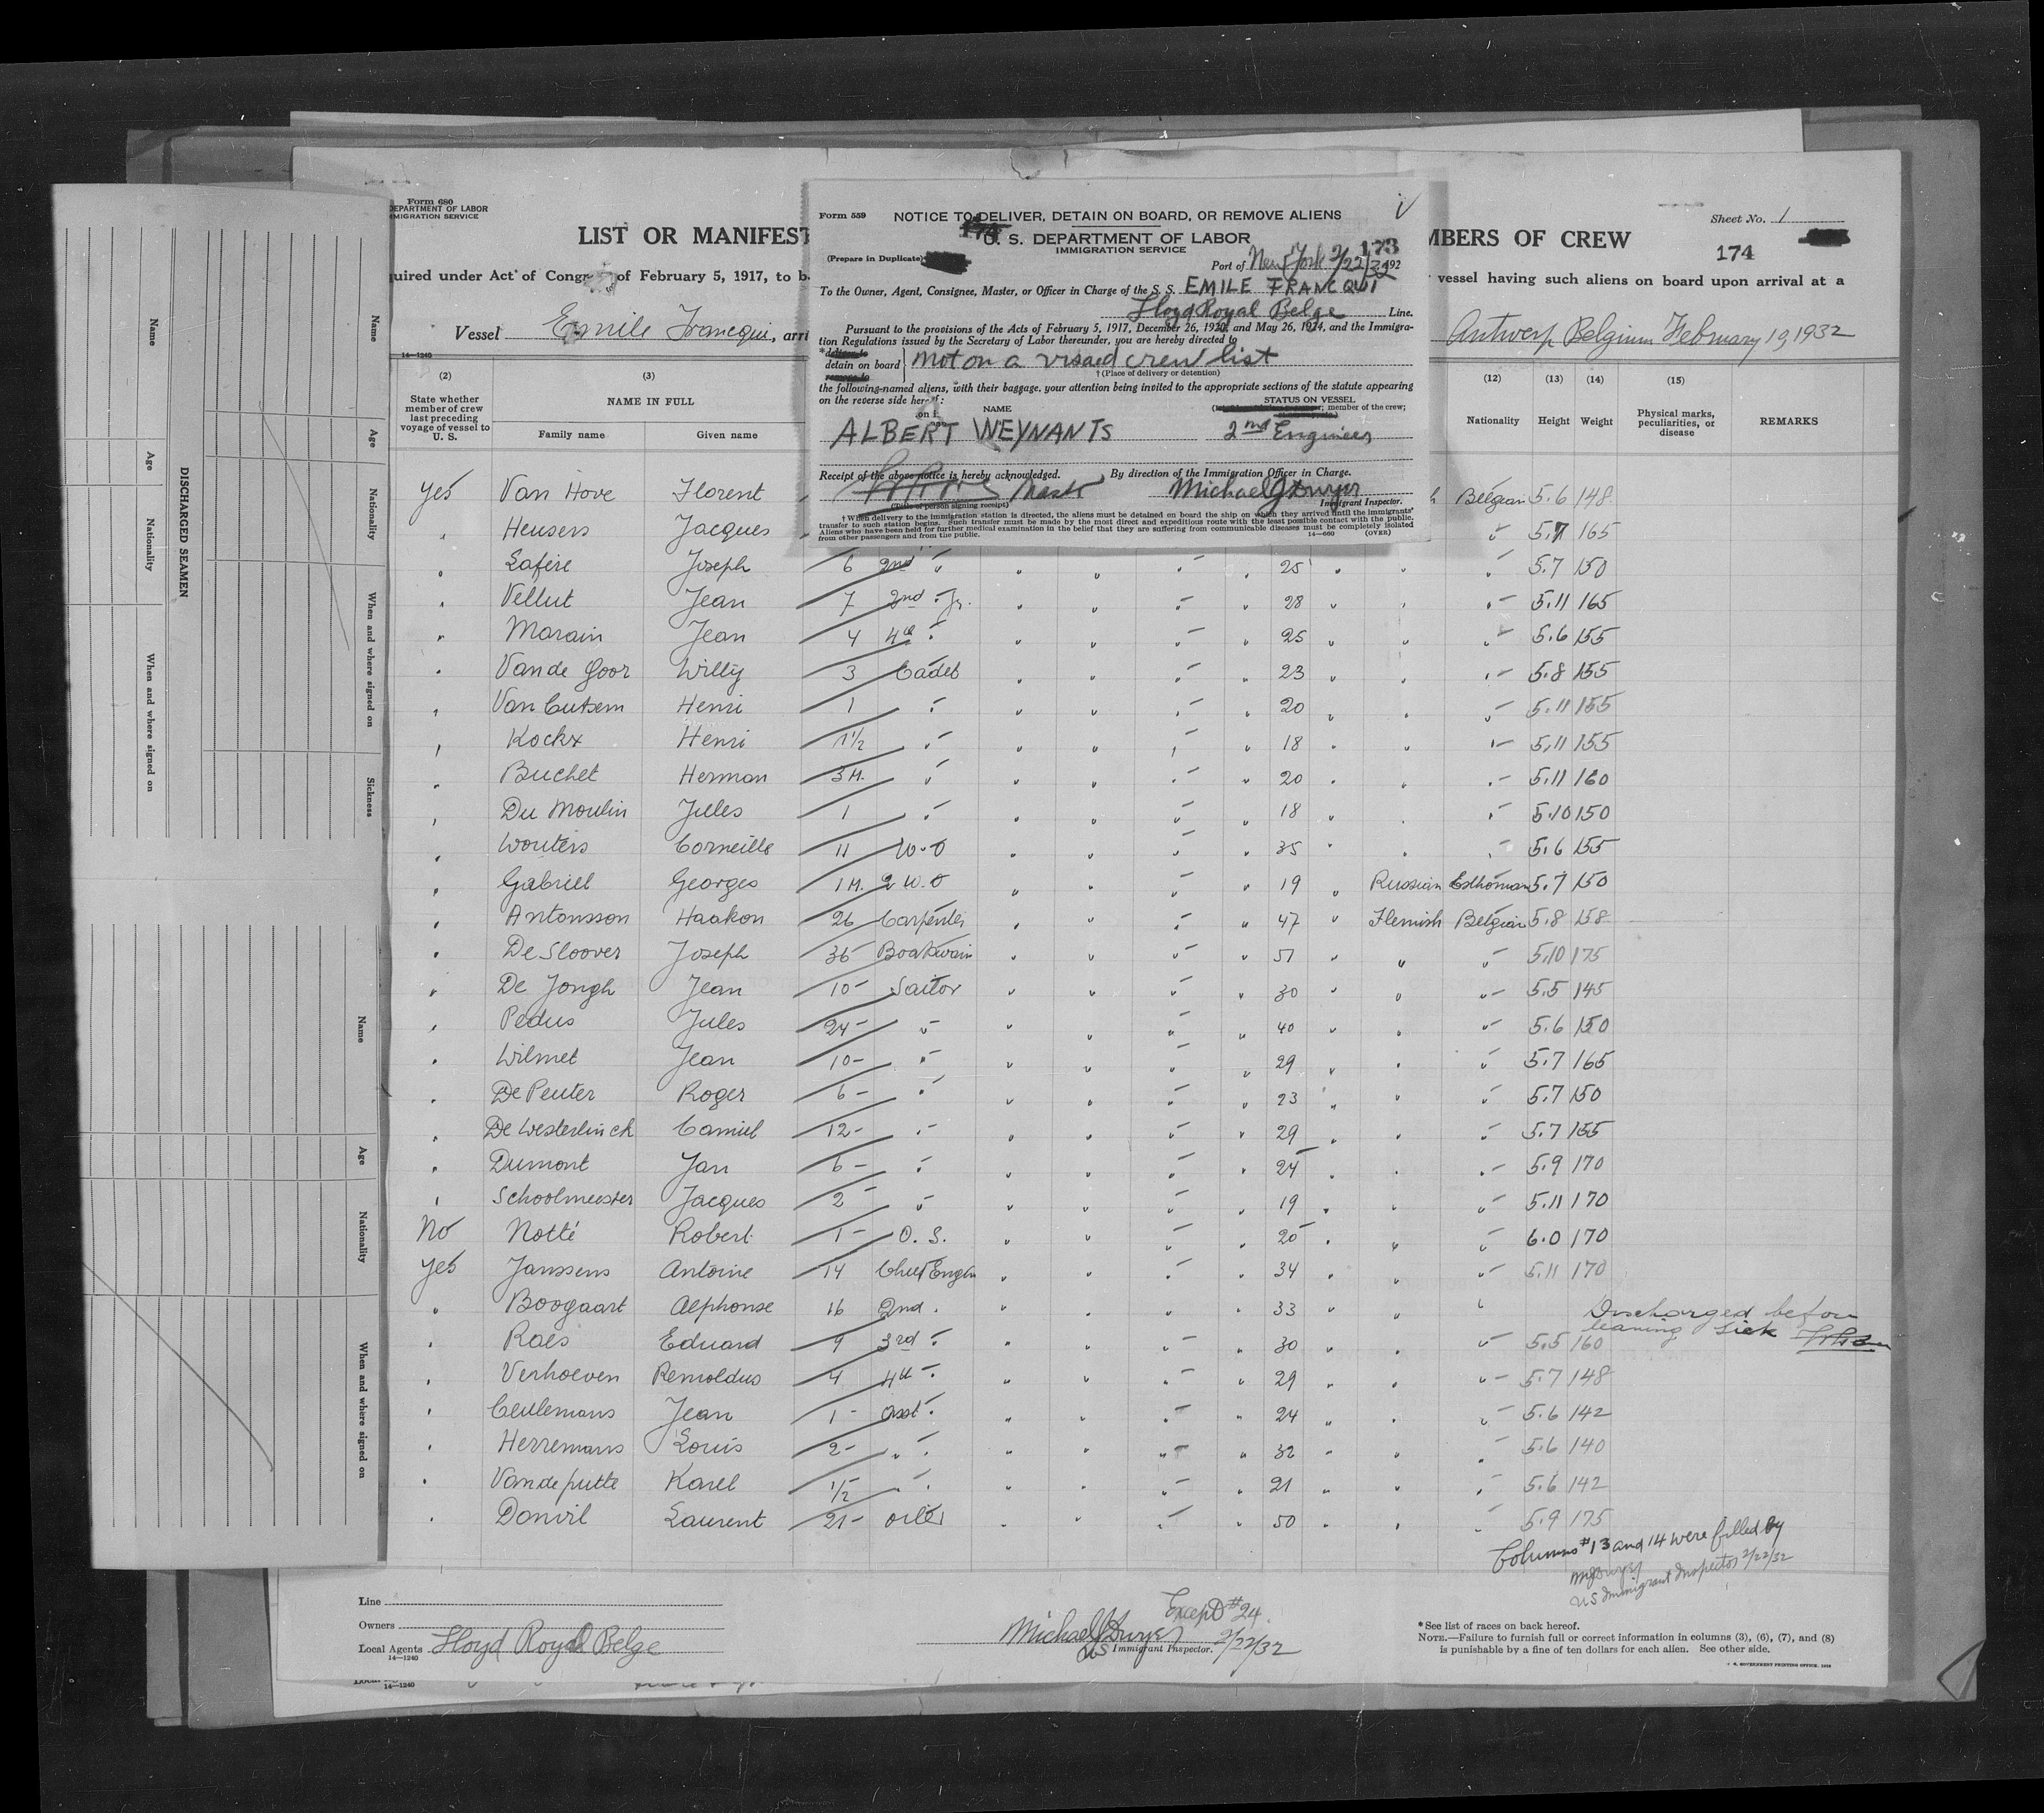 Form 680
DEPARTMENT OF LABOR
IMMIGRATION SERVICE
LIST OR MANIFEST
MBERS OF CREW
Sheet No. 1
174
quired under Act of Congr of February 5, 1917, to b
vessel having such aliens on board upon arrival at a
Vessel Emile Francqui, arri
Antwerp Belgium February 19, 1932
14—1240
Form 559
NOTICE TO DELIVER, DETAIN ON BOARD, OR REMOVE ALIENS
174
U. S. DEPARTMENT OF LABOR
IMMIGRATION SERVICE
173
(Prepare in Duplicate)
Port of New York 2/22/32 192
To the Owner, Agent, Consignee, Master, or Officer in Charge of the S. S. EMILE FRANCQUI
Lloyd Royal Belge Line.
Pursuant to the provisions of the Acts of February 5, 1917, December 26, 1920, and May 26, 1924, and the Immigra-
tion Regulations issued by the Secretary of Labor thereunder, you are hereby directed to
*deliver to
detain on board
remove to
not on a visaed crew list
† (Place of delivery or detention)
the following-named aliens, with their baggage, your attention being invited to the appropriate sections of the statute appearing
on the reverse side hereof:
NAME
STATUS ON VESSEL
member of the crew;
ALBERT WEYNANTS 2nd Engineer
Receipt of the above notice is hereby acknowledged. By direction of the Immigration Officer in Charge.
Master Michael J Dwyer
(Title of person signing receipt) Immigrant Inspector.
† When delivery to the immigration station is directed, the aliens must be detained on board the ship on which they arrived until the immigrants'
transfer to such station begins. Such transfer must be made by the most direct and expeditious route with the least possible contact with the public.
Aliens who have been held for further medical examination in the belief that they are suffering from communicable diseases must be completely isolated
from other passengers and from the public.
14—660 (OVER)
(2) (3) (12) (13) (14) (15)
State whether member of crew last preceding voyage of vessel to U. S.
NAME IN FULL
Family name Given name
Nationality Height Weight Physical marks, peculiarities, or disease REMARKS
Yes Van Hove Florent h Belgian 5.6 148
" Heusers Jacques " 5.7 165
" Lafere Joseph 6 2nd " " " " " 25 " " " 5.7 150
" Vellut Jean 7 2nd " Jr. " " " " 28 " " " 5.11 165
" Marain Jean 4 4th " " " " " 25 " " " 5.6 155
" Van de Goor Willy 3 Cadet " " " " 23 " " " 5.8 155
" Van Cutsem Henri 1 " " " " " 20 " " " 5.11 155
" Kockx Henri 1 1/2 " " " " " 18 " " " 5.11 155
" Buchet Herman 3 M. " " " " " 20 " " " 5.11 160
" Du Moulin Jules 1 " " " " " 18 " " " 5.10 150
" Wouters Corneille 11 W.O " " " " 35 " " " 5.6 155
" Gabriel Georges 1 M. 2 W.O " " " " 19 " Russian Esthonian 5.7 150
" Antonsson Haakon 26 Carpenter " " " " 47 " Flemish Belgian 5.8 158
" De Sloover Joseph 36 Boatswain " " " " 51 " " " 5.10 175
" De Jongh Jean 10 - Sailor " " " " 30 " " " 5.5 145
" Pedus Jules 24 - " " " " " 40 " " " 5.6 150
" Wilmet Jean 10 - " " " " " 29 " " " 5.7 165
" De Penter Roger 6 - " " " " " 23 " " " 5.7 150
" De Westerlinck Camiel 12 - " " " " " 29 " " " 5.7 155
" Dumont Jan 6 - " " " " " 24 " " " 5.9 170
" Schoolmeester Jacques 2 - " " " " " 19 " " " 5.11 170
No Notté Robert 1 - O. S. " " " " 20 " " " 6.0 170
Yes Janssens Antoine 14 Chief Engin " " " " 34 " " " 5.11 170
" Boogaart Alphonse 16 2nd " " " " " 33 " " " Discharged before leaving sick
" Raes Eduard 9 3rd " " " " " 30 " " " 5.5 160
" Verhoeven Remoldus 4 4th " " " " " 29 " " " 5.7 148
" Ceulemans Jean 1 - Asst " " " " " 24 " " " 5.6 142
" Herremans Louis 2 - " " " " " " 32 " " " 5.6 140
" Van de putte Karel 1/2 " " " " " " 21 " " " 5.6 142
" Donvil Laurent 21 - oiler " " " " 50 " " " 5.9 175
Columns #13 and 14 were filled by
MJ Dwyer
US Immigrant Inspector 2/22/32
Line
Owners
Local Agents Lloyd Royal Belge
14—1240
Except #24
Michael J Dwyer 2/22/32
US Immigrant Inspector.
*See list of races on back hereof.
NOTE.—Failure to furnish full or correct information in columns (3), (6), (7), and (8)
is punishable by a fine of ten dollars for each alien. See other side.
14—1240
DISCHARGED SEAMEN
Name Age Nationality When and where signed on Sickness
Name Age Nationality When and where signed on
Name Age Nationality When and where signed on